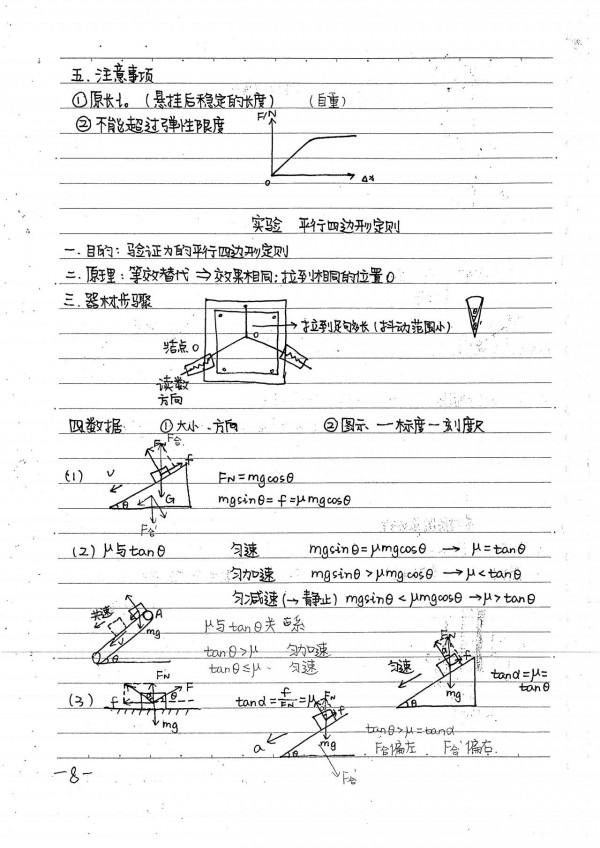 五. 注意事项
①原长L₀ (悬挂后稳定的长度) (自重)
②不能超过弹性限度
F/N
0
Δx
实验 平行四边形定则
一. 目的: 验证力的平行四边形定则
二. 原理: 等效替代 ⇒ 效果相同; 拉到相同的位置O
三. 器材步骤
拉到足够长 (抖动范围小)
结点O
读数
方向
四数据 ①大小.方向 ②图示 一标度一刻度尺
(1) v F合 f G θ F合'
FN=mgcosθ
mgsinθ=f=μmgcosθ
(2) μ与tanθ 匀速 mgsinθ=μmgcosθ → μ=tanθ
匀加速 mgsinθ>μmgcosθ → μ<tanθ
匀减速(→静止) mgsinθ<μmgcosθ → μ>tanθ
共速 A v mg θ
μ与tanθ关系
tanθ>μ 匀加速
tanθ≤μ. 匀速
匀速 FN α f mg θ
tanα=μ=
tanθ
(3) FN F f θ mg
tanα=f/FN=μ
FN f mg a θ F合
tanθ>μ=tanα
F合偏左. F合'偏右.
-8-